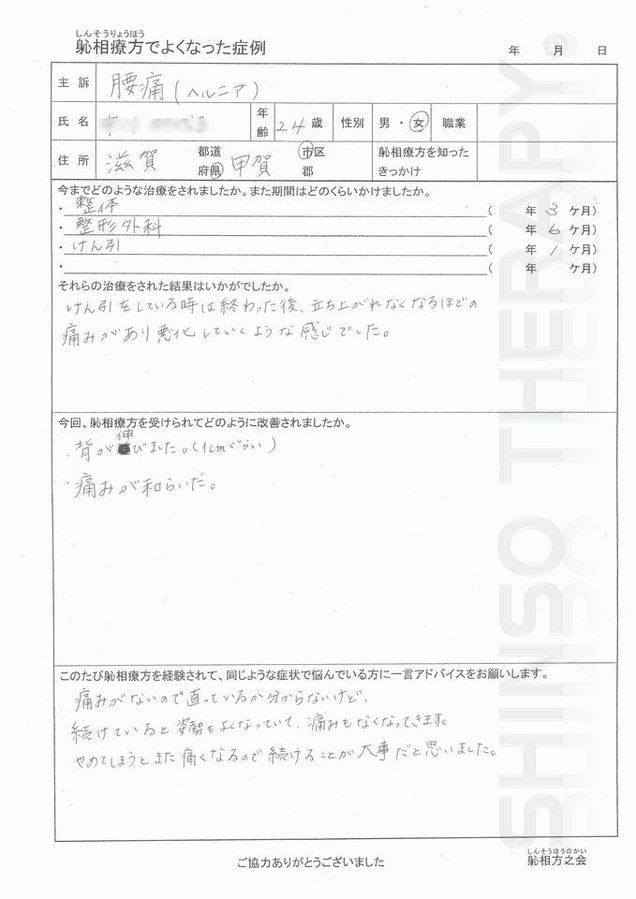 しんそうりょうほう
躰相療方でよくなった症例
年 月 日
主訴 腰痛(ヘルニア)
氏名 年齢 24歳 性別 男・女 職業
住所 滋賀 都道府県 甲賀 市区郡 躰相療方を知ったきっかけ
今までどのような治療をされましたか。また期間はどのくらいかけましたか。
・整体 ( 年 3 ケ月)
・整形外科 ( 年 6 ケ月)
・けん引 ( 年 1 ケ月)
・ ( 年 ケ月)
それらの治療をされた結果はいかがでしたか。
けん引をしている時は終わった後、立ち上がれなくなるほどの
痛みがあり悪化していくような感じでした。
今回、躰相療方を受けられてどのように改善されましたか。
・背が伸びました。(1cmぐらい)
・痛みが和らいだ。
このたび躰相療方を経験されて、同じような症状で悩んでいる方に一言アドバイスをお願いします。
痛みがないので直っているか分からないけど、
続けていると姿勢もよくなっていて、痛みもなくなってきます。
やめてしまうとまた痛くなるので続けることが大事だと思いました。
ご協力ありがとうございました
しんそうほうのかい
躰相方之会
SHINSO THERAPY